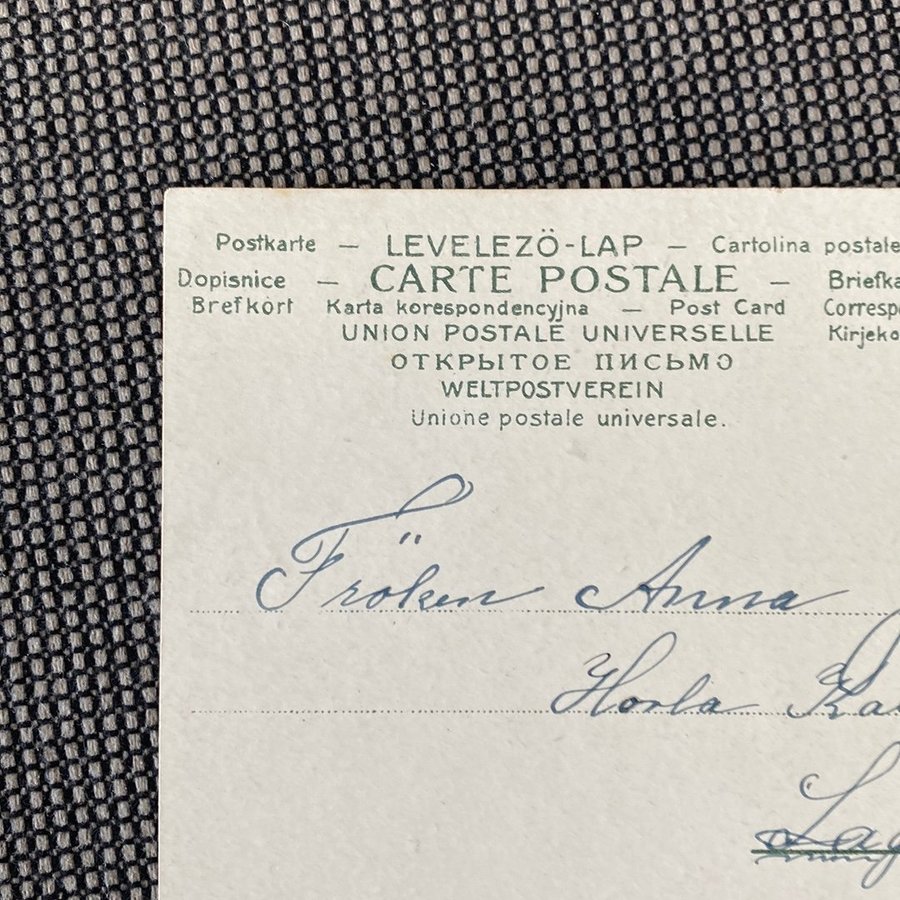 Postkarte — LEVELEZÖ-LAP — Cartolina postale
Dopisnice — CARTE POSTALE — Briefka
Brefkort Karta korespondencyjna — Post Card Correspo
UNION POSTALE UNIVERSELLE Kirjeko
ОТКРЫТОЕ ПИСЬМО
WELTPOSTVEREIN
Unione postale universale.
Fröken Anna
Horla Ka
Lag